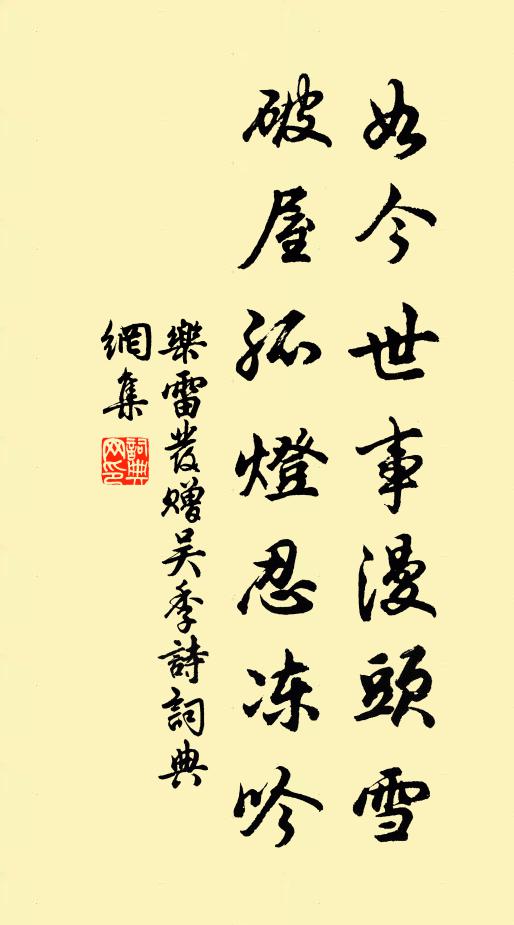 如今世事漫頭雪
破屋孤燈忍冻吟
樂雷發贈吴季詩詞典
網集
詞典網印